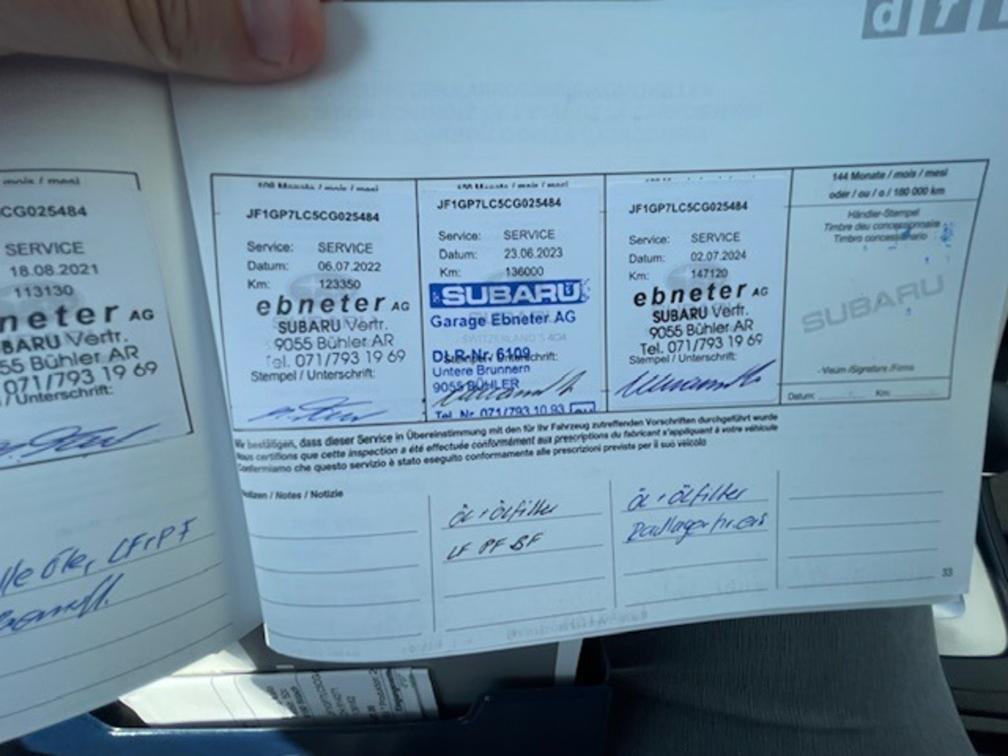 dri
mois / mesi
CG025484
SERVICE
18.08.2021
113130
neter AG
BARU Vertr.
55 Bühler AR
071/793 19 69
/ Unterschrift:
lle Öle, LF+PF
JF1GP7LC5CG025484
Service: SERVICE
Datum: 06.07.2022
Km: 123350
ebneter AG
SUBARU Vertr.
9055 Bühler AR
Tel. 071/793 19 69
Stempel / Unterschrift:
JF1GP7LC5CG025484
Service: SERVICE
Datum: 23.06.2023
Km: 136000
SUBARU
Garage Ebneter AG
SWITZERLAND
DLR-Nr. 6109
Untere Brunnern
9055 BÜHLER
Tel. Nr. 071/793 10 93
JF1GP7LC5CG025484
Service: SERVICE
Datum: 02.07.2024
Km: 147120
ebneter AG
SUBARU Vertr.
9055 Bühler AR
Tel. 071/793 19 69
Stempel / Unterschrift:
144 Monate / mois / mesi
oder / ou / o / 180 000 km
Händler-Stempel
Timbre du concessionnaire
Timbro concessionario
SUBARU
- Visum /Signature /Firma
Datum: Km:
Wir bestätigen, dass dieser Service in Übereinstimmung mit den für Ihr Fahrzeug zutreffenden Vorschriften durchgeführt wurde
Nous certifions que cette inspection a été effectuée conformément aux prescriptions du fabricant s'appliquant à votre véhicule
Confermiamo che questo servizio è stato eseguito conformamente alle prescrizioni previste per il suo veicolo
Notizen / Notes / Notizie
Öl + Ölfilter
LF PF BF
Öl + Ölfilter
Radlager hr. ers
33